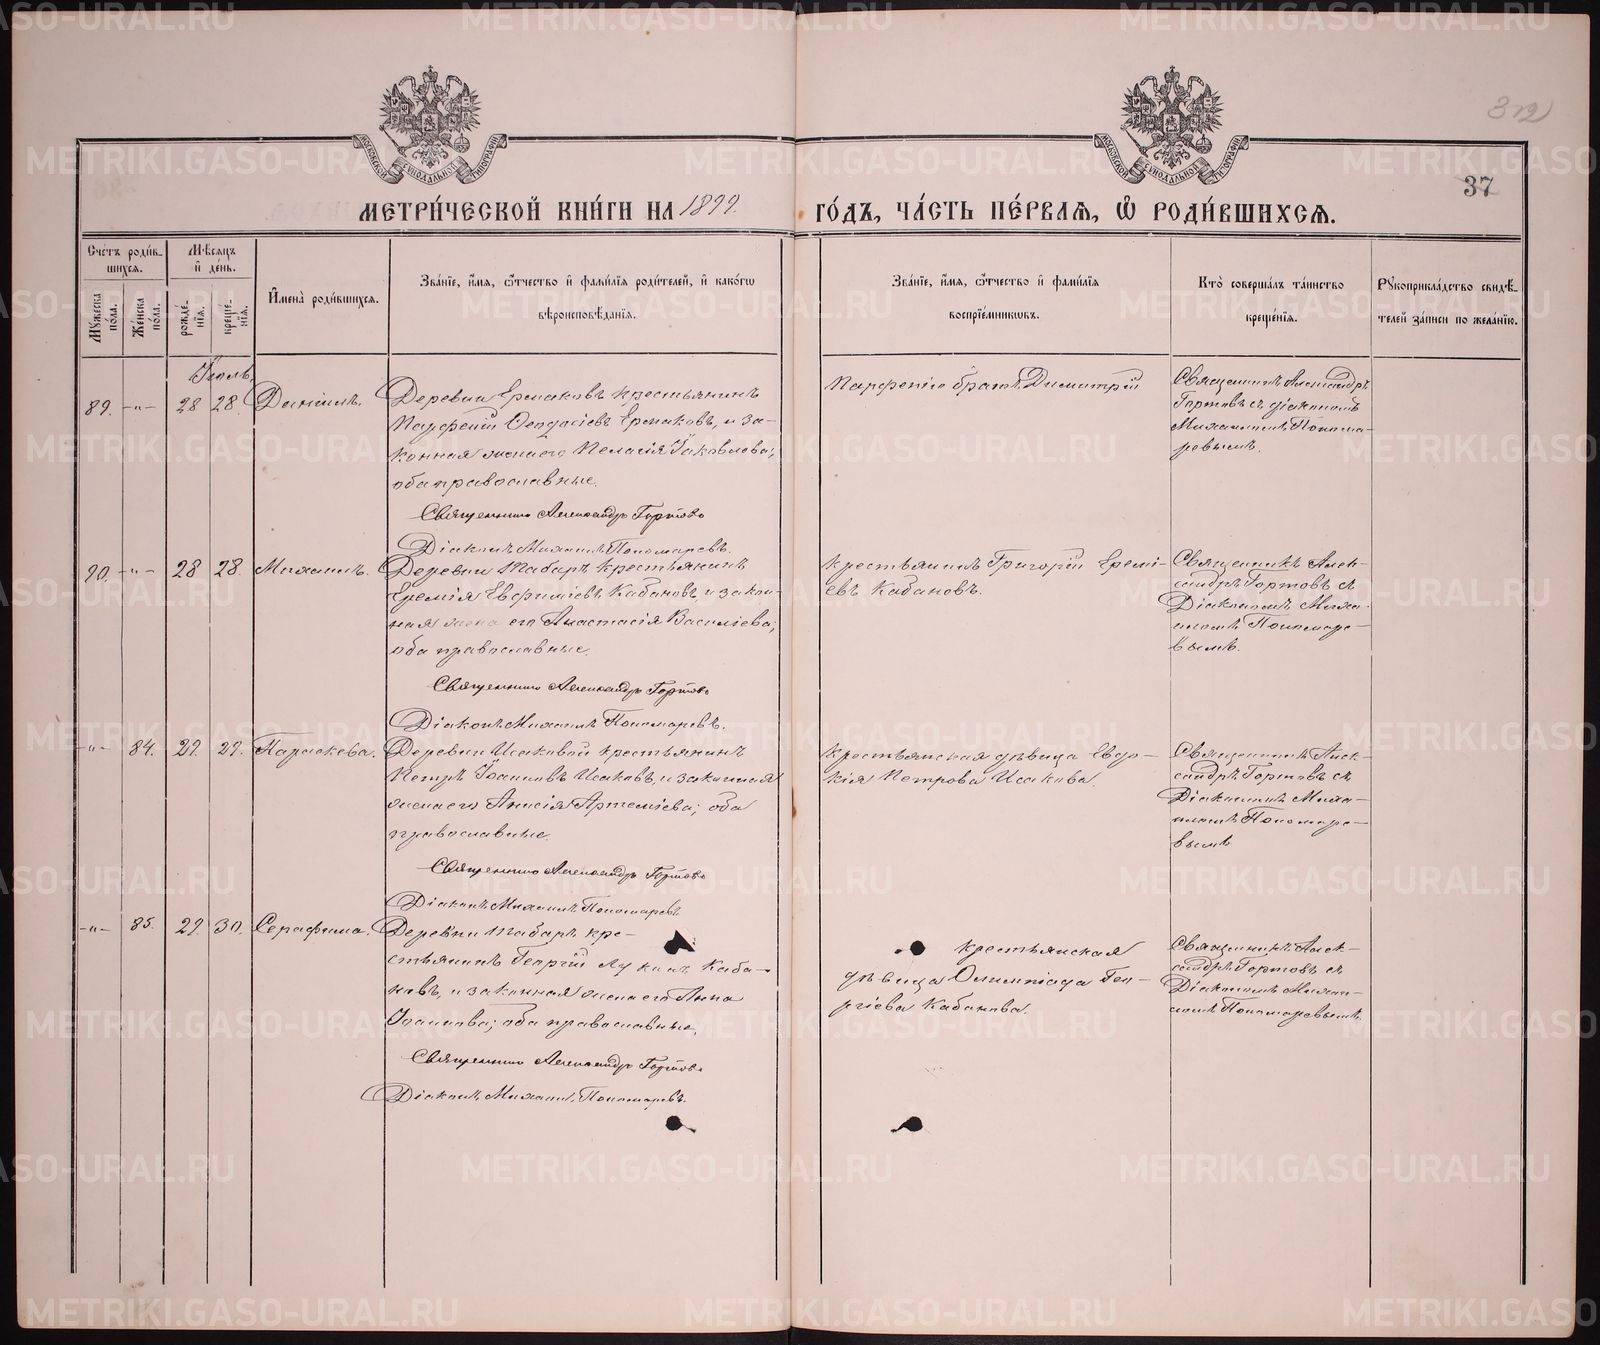 312
37
МОСКОВСКОЙ СѴНОДАЛЬНОЙ ТИПОГРАФІИ
МОСКОВСКОЙ СѴНОДАЛЬНОЙ ТИПОГРАФІИ
МЕТРИ́ЧЕСКОЙ КНИ́ГИ НА 1899.
ГО́ДЪ, ЧА́СТЬ ПЕ́РВАѦ, Ѡ҆ РОДИ́ВШИХСѦ.
Сче́тъ роди́в-
шихсѧ.
Мꙋжеска по́ла.
Же́нска по́ла.
Мѣсѧцъ и҆ де́нь.
рожде́-
нїѧ.
креще́-
нїѧ.
И҆мена̀ роди́вшихсѧ.
Зва́нїе, и҆́мѧ, ѻ҆́тчество и҆ фами́лїѧ роди́телей, и҆ како́гѡ
вѣроисповѣ́данїѧ.
Зва́нїе, и҆́мѧ, ѻ҆́тчество и҆ фами́лїѧ
воспрїе́мникѡвъ.
Кто̀ соверша́лъ та́инство
креще́нїѧ.
Рꙋкоприкла́дство свидѣ́-
телей за́писи по жела́нїю.
Іюль
89. -"- 28 28. Даніилъ.
Деревни Ермаковъ крестьянинъ
Парфеній Ѳеодосіевъ Ермаковъ, и за-
конная жена его Пелагія Іаковлева;
оба православные.
Священникъ Александръ Гортовъ
Діаконъ Михаилъ Пономаревъ.
Парфенію братъ Димитрій
Священникъ Александръ
Гортовъ съ діакономъ
Михаиломъ Понома-
ревымъ.
90. -"- 28 28. Михаилъ.
Деревни Табаръ крестьянинъ
Еремія Евфиміевъ Кабановъ, и закон-
ная жена его Анастасія Василіева;
оба православные.
Священникъ Александръ Гортовъ
Діаконъ Михаилъ Пономаревъ.
крестьянинъ Григорій Еремі-
евъ Кабановъ.
Священникъ Алек-
сандръ Гортовъ съ
Діакономъ Миха-
иломъ Пономаре-
вымъ.
-"- 84. 29 29. Параскева.
Деревни Исаковой крестьянинъ
Петръ Іоанновъ Исаковъ, и законная
жена его Анисія Артеміева; оба
православные.
Священникъ Александръ Гортовъ
Діаконъ Михаилъ Пономаревъ
крестьянская дѣвица Евдо-
кія Петрова Исакова.
Священникъ Алек-
сандръ Гортовъ съ
Діакономъ Миха-
иломъ Пономаре-
вымъ
-"- 85. 29. 30. Серафима.
Деревни Табаръ кре-
стьянинъ Георгій Лукинъ Каба-
новъ, и законная жена его Анна
Іоаннова; оба православные.
Священникъ Александръ Гортовъ
Діаконъ Михаилъ Пономаревъ.
крестьянская
дѣвица Олимпіада Гео-
ргіева Кабанова.
Священникъ Алек-
сандръ Гортовъ съ
Діакономъ Михаи-
ломъ Пономаревымъ.
METRIKI.GASO-URAL.RU